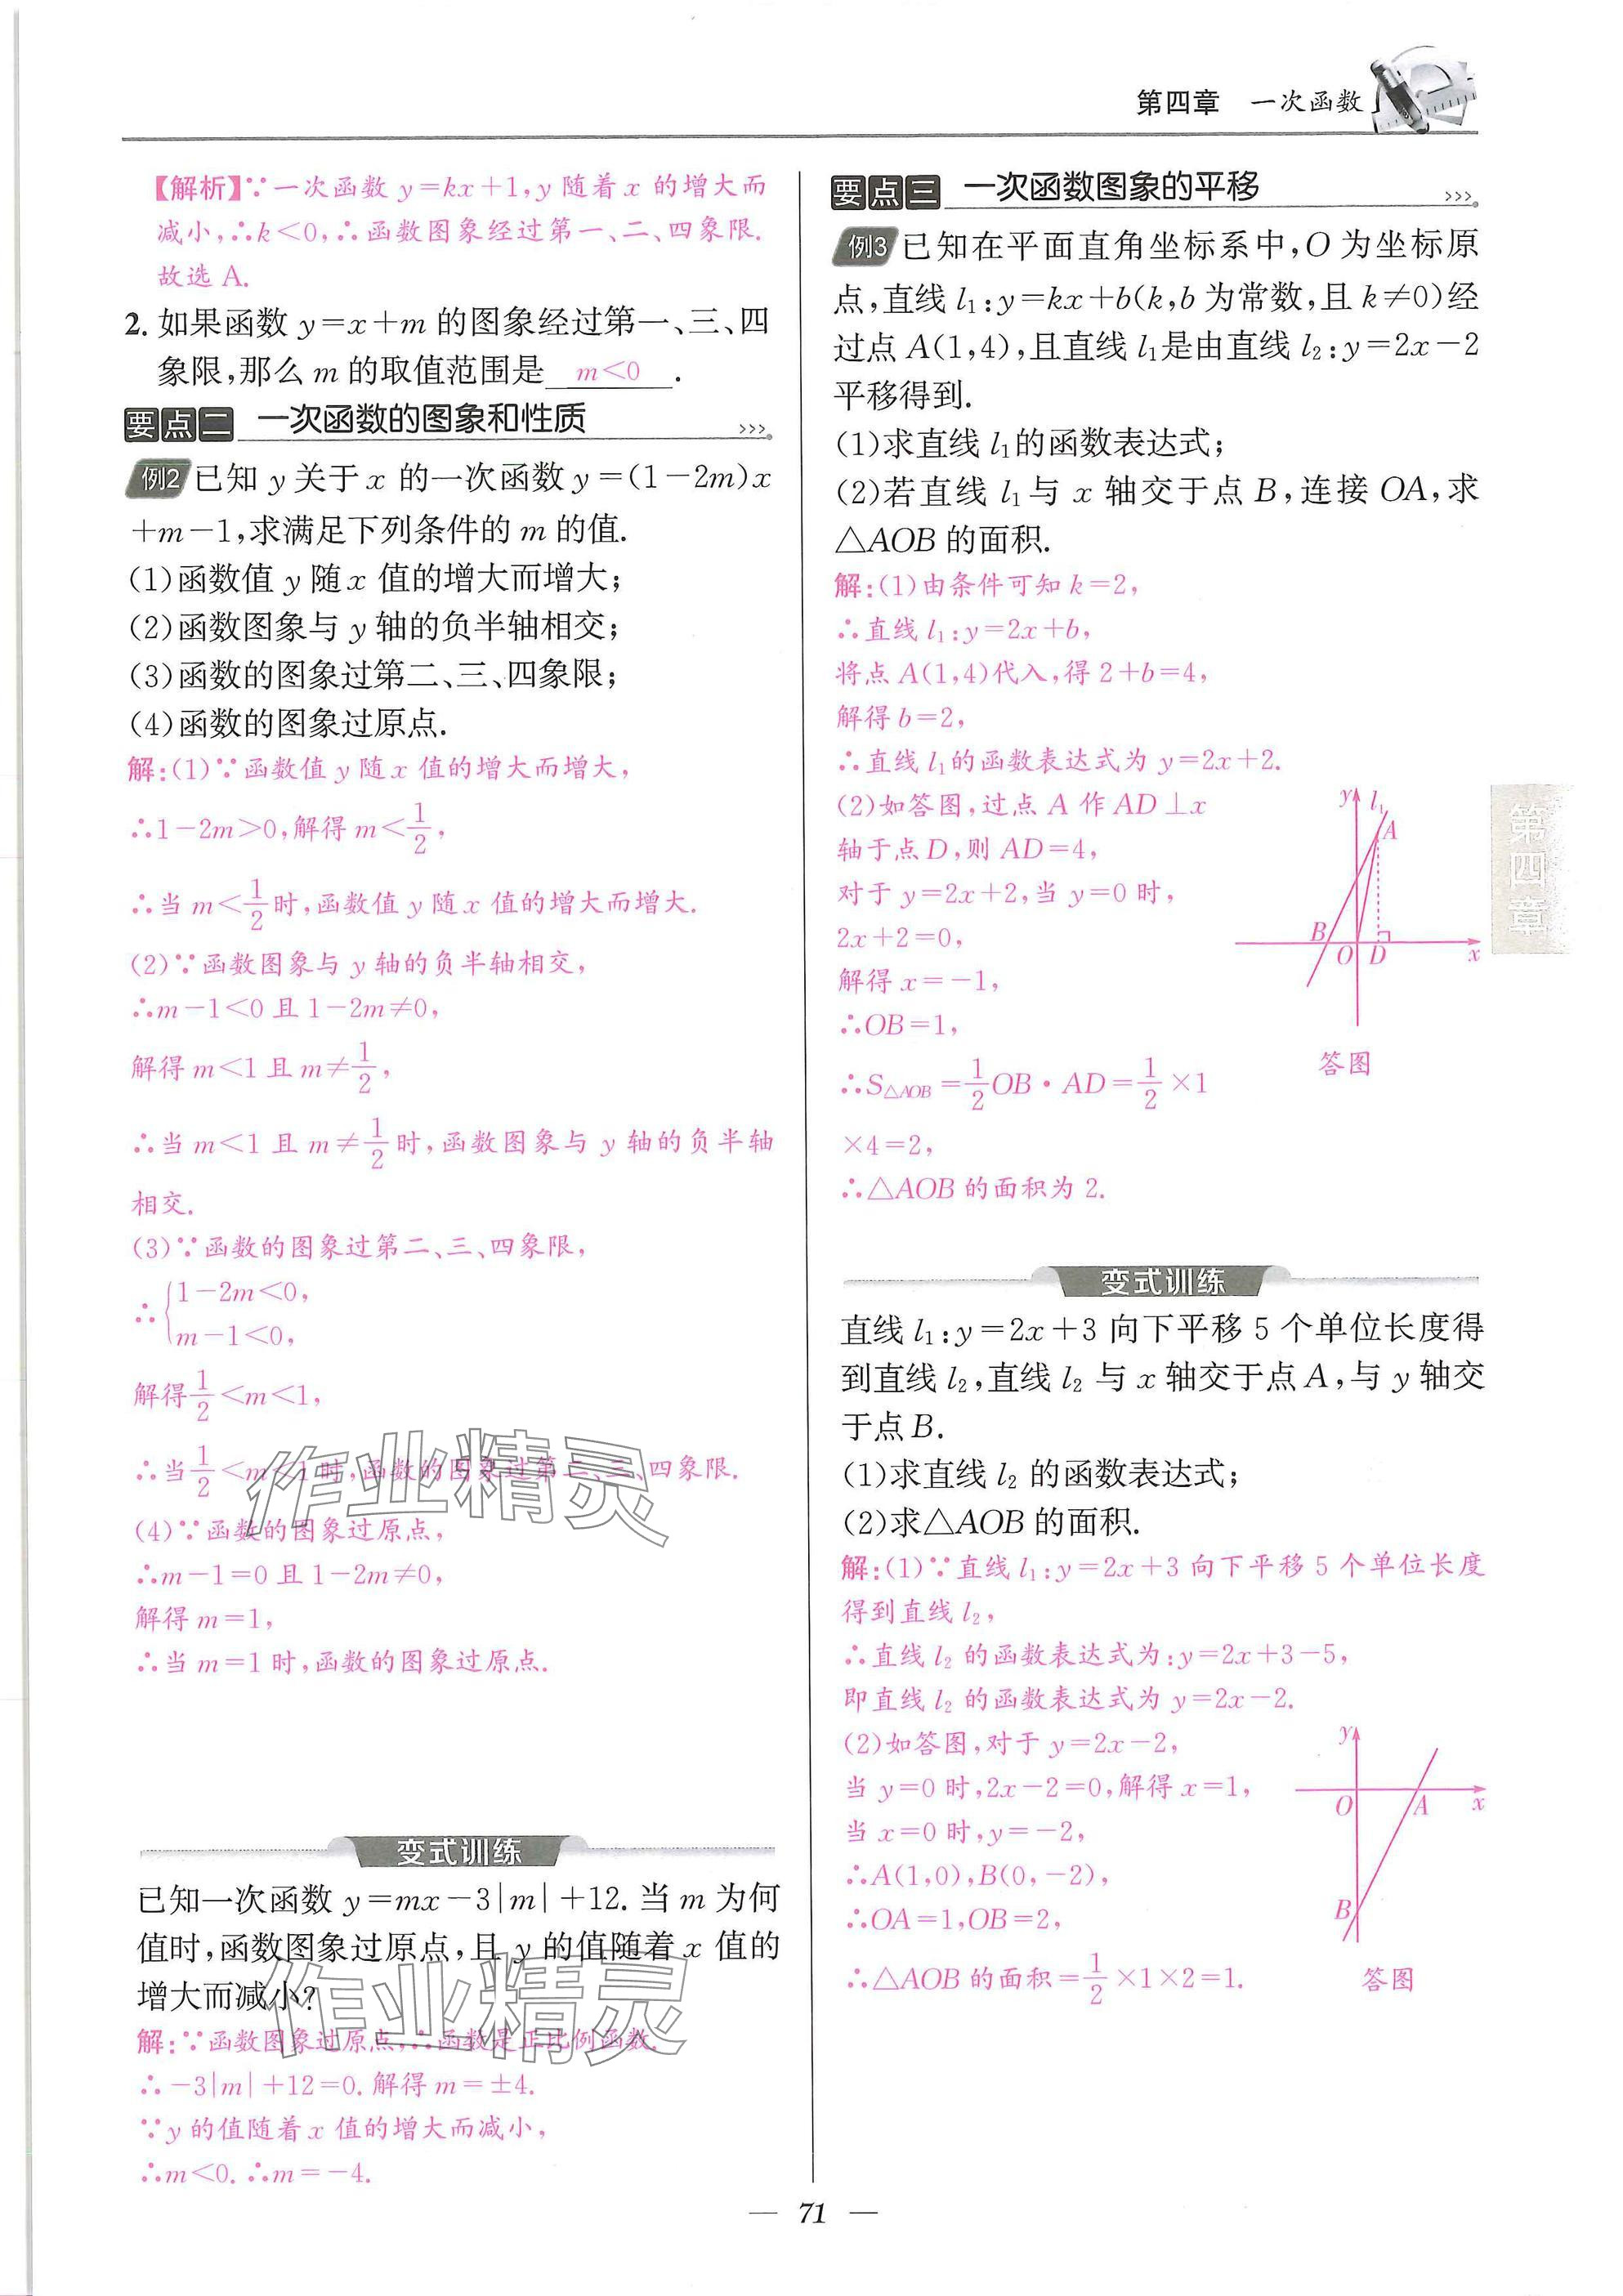 第四章 一次函数
【解析】∵一次函数 y=kx+1,y 随着 x 的增大而
减小,∴k<0,∴函数图象经过第一、二、四象限.
故选 A.
2. 如果函数 y=x+m 的图象经过第一、三、四
象限,那么 m 的取值范围是 m<0 .
要点二 一次函数的图象和性质 >>>
例2 已知 y 关于 x 的一次函数 y=(1-2m)x
+m-1,求满足下列条件的 m 的值.
(1)函数值 y 随 x 值的增大而增大;
(2)函数图象与 y 轴的负半轴相交;
(3)函数的图象过第二、三、四象限;
(4)函数的图象过原点.
解:(1)∵函数值 y 随 x 值的增大而增大,
∴1-2m>0,解得 m<1/2,
∴当 m<1/2时,函数值 y 随 x 值的增大而增大.
(2)∵函数图象与 y 轴的负半轴相交,
∴m-1<0 且 1-2m≠0,
解得 m<1 且 m≠1/2,
∴当 m<1 且 m≠1/2时,函数图象与 y 轴的负半轴
相交.
(3)∵函数的图象过第二、三、四象限,
∴{1-2m<0,
m-1<0,
解得1/2<m<1,
∴当1/2<m<1时,函数的图象过第二、三、四象限.
(4)∵函数的图象过原点,
∴m-1=0 且 1-2m≠0,
解得 m=1,
∴当 m=1 时,函数的图象过原点.
作业精灵
变式训练
已知一次函数 y=mx-3|m|+12. 当 m 为何
值时,函数图象过原点,且 y 的值随着 x 值的
增大而减小?
解:∵函数图象过原点,∴函数是正比例函数.
∴-3|m|+12=0. 解得 m=±4.
∵y 的值随着 x 值的增大而减小,
∴m<0. ∴m=-4.
作业精灵
要点三 一次函数图象的平移 >>>
例3 已知在平面直角坐标系中,O 为坐标原
点,直线 l₁:y=kx+b(k,b 为常数,且 k≠0)经
过点 A(1,4),且直线 l₁是由直线 l₂:y=2x-2
平移得到.
(1)求直线 l₁的函数表达式;
(2)若直线 l₁与 x 轴交于点 B,连接 OA,求
△AOB 的面积.
解:(1)由条件可知 k=2,
∴直线 l₁:y=2x+b,
将点 A(1,4)代入,得 2+b=4,
解得 b=2,
∴直线 l₁的函数表达式为 y=2x+2.
(2)如答图,过点 A 作 AD⊥x
轴于点 D,则 AD=4,
对于 y=2x+2,当 y=0 时,
2x+2=0,
解得 x=-1,
∴OB=1,
∴S△AOB=1/2OB·AD=1/2×1
×4=2,
∴△AOB 的面积为 2.
y l₁
A
B
O D x
答图
变式训练
直线 l₁:y=2x+3 向下平移 5 个单位长度得
到直线 l₂,直线 l₂ 与 x 轴交于点 A,与 y 轴交
于点 B.
(1)求直线 l₂ 的函数表达式;
(2)求△AOB 的面积.
解:(1)∵直线 l₁:y=2x+3 向下平移 5 个单位长度
得到直线 l₂,
∴直线 l₂ 的函数表达式为:y=2x+3-5,
即直线 l₂ 的函数表达式为 y=2x-2.
(2)如答图,对于 y=2x-2,
当 y=0 时,2x-2=0,解得 x=1,
当 x=0 时,y=-2,
∴A(1,0),B(0,-2),
∴OA=1,OB=2,
∴△AOB 的面积=1/2×1×2=1.
y
O A x
B
答图
第四章
— 71 —